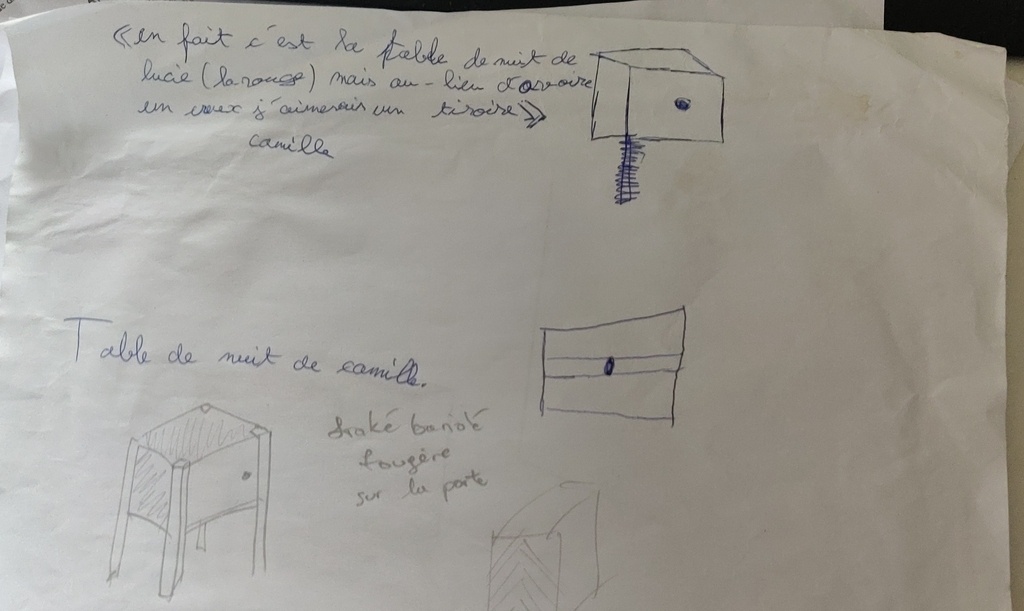 « en fait c'est la table de nuit de
lucie (la rouge) mais au-lieu d'avoire
un creux j'aimerais un tiroire »
camille
Table de nuit de camille.
fraké bariolé
fougère
sur la porte